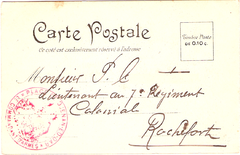 Carte Postale
Ce côté est exclusivement réservé à l'adresse
Timbre Poste
de 0,10 c.
Monsieur P. C
Lieutenant au 7e Régiment
Colonial
Rochefort